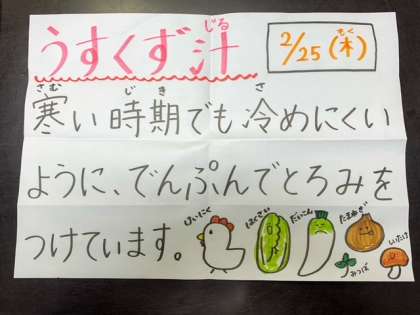 うすくず汁
じる
2/25(木)
もく
寒い時期でも冷めにくい
さむ じ き さ
ように、でんぷんでとろみを
つけています。
けいにく
はくさい
だいこん
たまねぎ
みつば
しいたけ